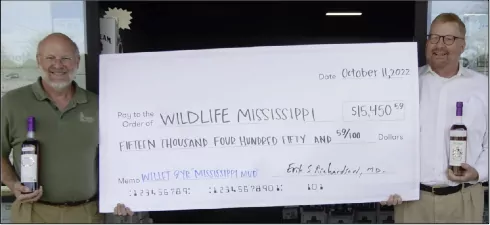 TEAM
Date October 11, 2022
Pay to the
Order of WILDLIFE MISSISSIPPI $15,450.59
FIFTEEN THOUSAND FOUR HUNDRED FIFTY AND 59/100 Dollars
Memo WILLET 8YR MISSISSIPPI MUD Erik S Richardson, M.D.
⑆123456789⑆ ⑆1234567890⑆ 101